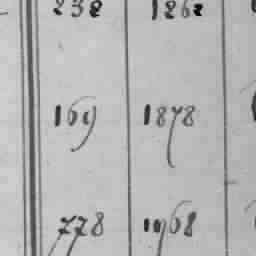 232 1262
169 1878
778 1968